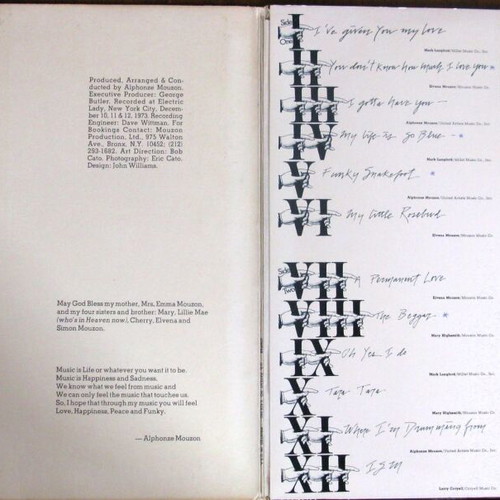 Produced, Arranged & Con-
ducted by Alphonse Mouzon.
Executive Producer: George
Butler. Recorded at Electric
Lady, New York City, Decem-
ber 10, 11 & 12, 1973. Recording
Engineer: Dave Wittman. For
Bookings Contact: Mouzon
Production, Ltd., 975 Walton
Ave., Bronx, N.Y. 10452; (212)
293-1682. Art Direction: Bob
Cato. Photography: Eric Cato.
Design: John Williams.
May God Bless my mother, Mrs. Emma Mouzon,
and my four sisters and brother: Mary, Lillie Mae
(who's in Heaven now), Cherry, Elvena and
Simon Mouzon.
Music is Life or whatever you want it to be.
Music is Happiness and Sadness.
We know what we feel from music and
We can only feel the music that touches us.
So, I hope that through my music you will feel
Love, Happiness, Peace and Funky.
— Alphonse Mouzon
Side One
I I've given You my Love
II You don't know how much I love you
Elvena Mouzon/Mouzon Music Co.
III I gotta have you —
Elvena Mouzon/Mouzon Music Co.
IV My life is so Blue
V Funky Snakefoot
Alphonse Mouzon/United Artists Music Co., Inc.
VI My Little Rosebud
Elvena Mouzon/Mouzon Music Co.
Side Two
VII A Permanent Love
Elvena Mouzon/Mouzon Music Co.
VIII The Beggar
IX Oh Yes I do
X Tara Tara
XI Where I'm Drumming From
Alphonse Mouzon/United Artists Music Co., Inc.
XII ISM
Larry Coryell/Coryell Music Co.